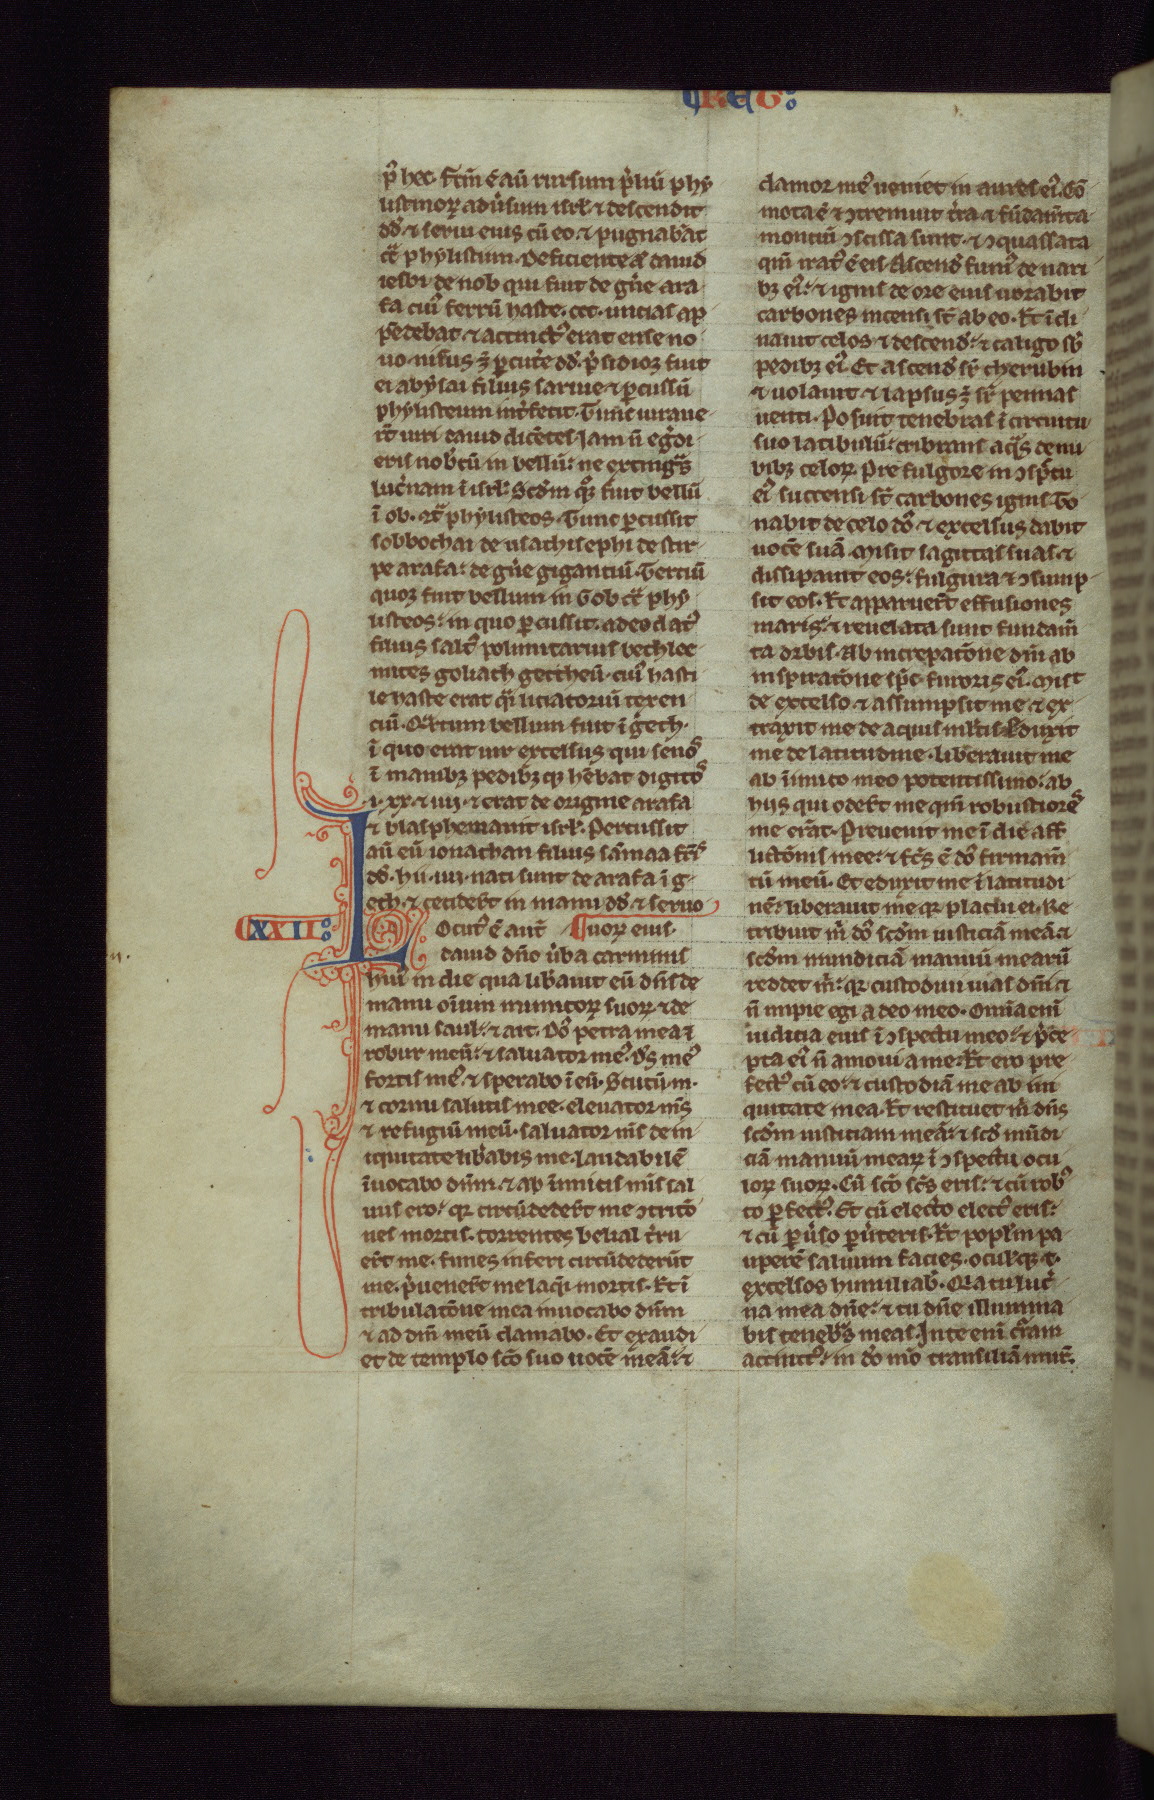 REG
p᷎ hec. fc̄m ē aū rursum p̄liū phy
listinoꝝ adūsum isrł ⁊ descendit
dd̄ ⁊ serui eius cū eo ⁊ pugnabāt
cͣ phylistium. Deficiente aͧ dauid
iesbi de nob qui fuit de gn̄e ara
fa cuiꝰ ferrū haste. ccc. uncias ap
pēdebat. ⁊ accinctꝰ erat ense no
uo. nisus ē ꝑcutͤe dd̄. p̄sidioqꝫ fuit
ei abysai filius saruie ⁊ ꝑcussū
phylisteum int̄fecit. Tunc iuraue
rt̄ uiri dauid dicētes. Jam n̄ egͤdi
eris nob̄cū in bellū: ne extingͣs
lucͤnam ī isrł. Scd̄m qͦꝫ fuit bellū
ī ob. cͣ phylisteos. Tunc ꝑcussit
sobbochai de usathi sephi de stir
pe arafa: de gn̄e gigantiū. Tertiū
quoqꝫ fuit bellum in Gob cͣ phy
listeos: in quo ꝑcussit. adeodatꝰ
filius saltꝰ polimitarius bethlee
mites goliath gettheū. cuiꝰ hasti
le haste erat qͣi liciatoriū texen
ciū. Qͣrtum bellum fuit ī gͤeth.
ī quo erat uir excelsus qui senoˢ
ī manibꝫ pedibꝫ qꝫ hēbat digitoˢ
.i. xx. ⁊ iiii. ⁊ erat de origine arafa
⁊ blasphemauit isrł. Percussit
aū eū ionathan filius samaa frīs
dd̄. hii. iiii. nati sunt de arafa ī g
eth. ⁊ cecider̄t in manu dd̄. ⁊ seruo
XXII Locutꝰ ē aut̄ ¶uoꝝ eius.
n. dauid dn̄o ūba carminis
huiꝰ in die qua lib̄auit eū dn̄s de
manu oīum inimicoꝝ suoꝝ ⁊ de
manu saul: ⁊ ait. Dn̄s petra mea ⁊
robur meū: ⁊ saluator meꝰ. Dˢ meꝰ
fortis meꝰ. ⁊ sperabo ī eū. Scutū. m.
⁊ cornu salutis mee. eleuator m̄s
⁊ refugiū meū. saluator m̄s de in
iquitate lib̄abis me. laudabilē
īuocabo dn̄m. ⁊ ab īimicis m̄is sal
uus ero: qꝛ circūdeder̄t me ↄtrito
nes mortis. torrentes belial tͤru
er̄t me. funes inferi circūdederūt
me. p̄uener̄t me laqͥ mortis. Et ī
tribulatōne mea inuocabo dn̄m
⁊ ad dm̄ meū clamabo. Et exaudi
et de templo scō suo uocē meā: ⁊
clamor meꝰ ueniet in aures eiꝰ. Cō
mota ē ⁊ ↄtremuit tͤra ⁊ fūdam̄ta
montiū ↄcissa sunt. ⁊ ↄquassata
qm̄ iratꝰ ē eis. Ascend̄ fumꝰ de nari
bꝫ eiꝰ. ⁊ ignis de ore eius uorabit
carbones incensi st̄ ab eo. Et īcli
nauit celos ⁊ descend̄: ⁊ caligo sb̄
pedibꝫ eiꝰ. Et ascend̄ sr̄ cherubin
⁊ uolauit. ⁊ lapsus ē sr̄ pennas
uenti. Posuit tenebras ī circuitu
suo latibulū: cribrans aqͣs de nu
bibꝫ celoꝝ. Pre fulgore in ↄspc̄tu
eiꝰ succensi st̄ carbones ignis. To
nabit de celo dn̄s ⁊ excelsus dabit
uocē suā. Misit sagittas suas ⁊
dissipauit eos: fulgura ⁊ ↄsump
sit eos. Et apparuer̄t effusiones
maris: ⁊ reuelata sunt fundam̄
ta orbis. Ab increpatōne dn̄i ab
inspiratōne spc̄ furoris eiꝰ. Misit
de excelso ⁊ assumpsit me ⁊ ex
traxit me de aquis ml̄tis. Eduxit
me de latitudine. liberauit me
ab īimico meo potentissimo: ab
hijs qui oder̄t me qm̄ robustioreˢ
me erāt. Preuenit me ī die aff
lictōnis mee: ⁊ fc̄s ē dn̄s firmam̄
tū meū. Et eduxit me ī latitudi
nē: liberauit me qꝛ placui ei. Re
tribuit m̄ dn̄s scd̄m iusticiā meā: ⁊
scd̄m mundiciā manuū mearū
reddet m̄: qꝛ custodiui uias dn̄i ⁊
n̄ impie egi a deo meo. Omīa enī
iudicia eius ī ↄspectu meo: ⁊ p̄ce
pta eiꝰ n̄ amoui a me. Et ero per
fectꝰ cū eo: ⁊ custodiā me ab ini
quitate mea. Et restituet m̄ dn̄s
scd̄m iusticiam meā: ⁊ scd̄ mūdi
ciā manuū meaꝝ ī ↄspectu ocu
loꝝ suoꝝ. Cū scō scs̄ eris: ⁊ cū robꝰ
to ꝑfectꝰ. Et cū electo electꝰ eris:
⁊ cū ꝑūso ꝑūteris. Et popl̄m pa
uperē saluum facies. oculisqꝫ t.
excelsos humiliab̄. Qͣ tu luc̄
na mea dn̄e: ⁊ tu dn̄e illumina
bis tenebͣs meas. In te enī cͥram
accinctꝰ: in dō mō transiliā mur̄.